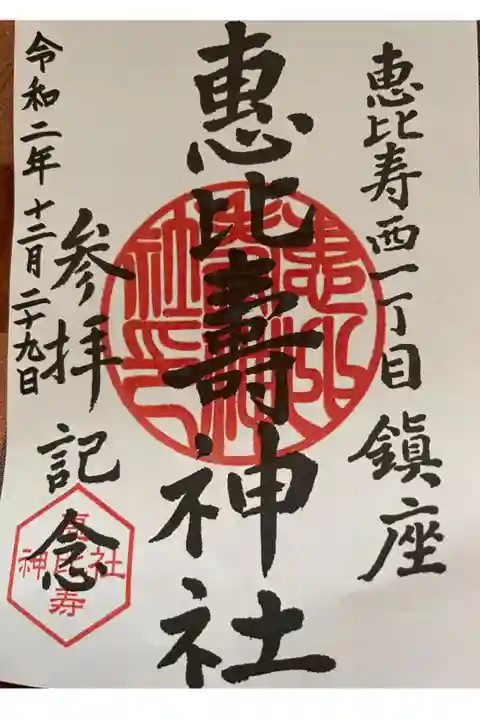 恵比寿西一丁目鎮座
恵比壽神社
参拝記念
令和二年十二月二十九日
恵比寿
神社